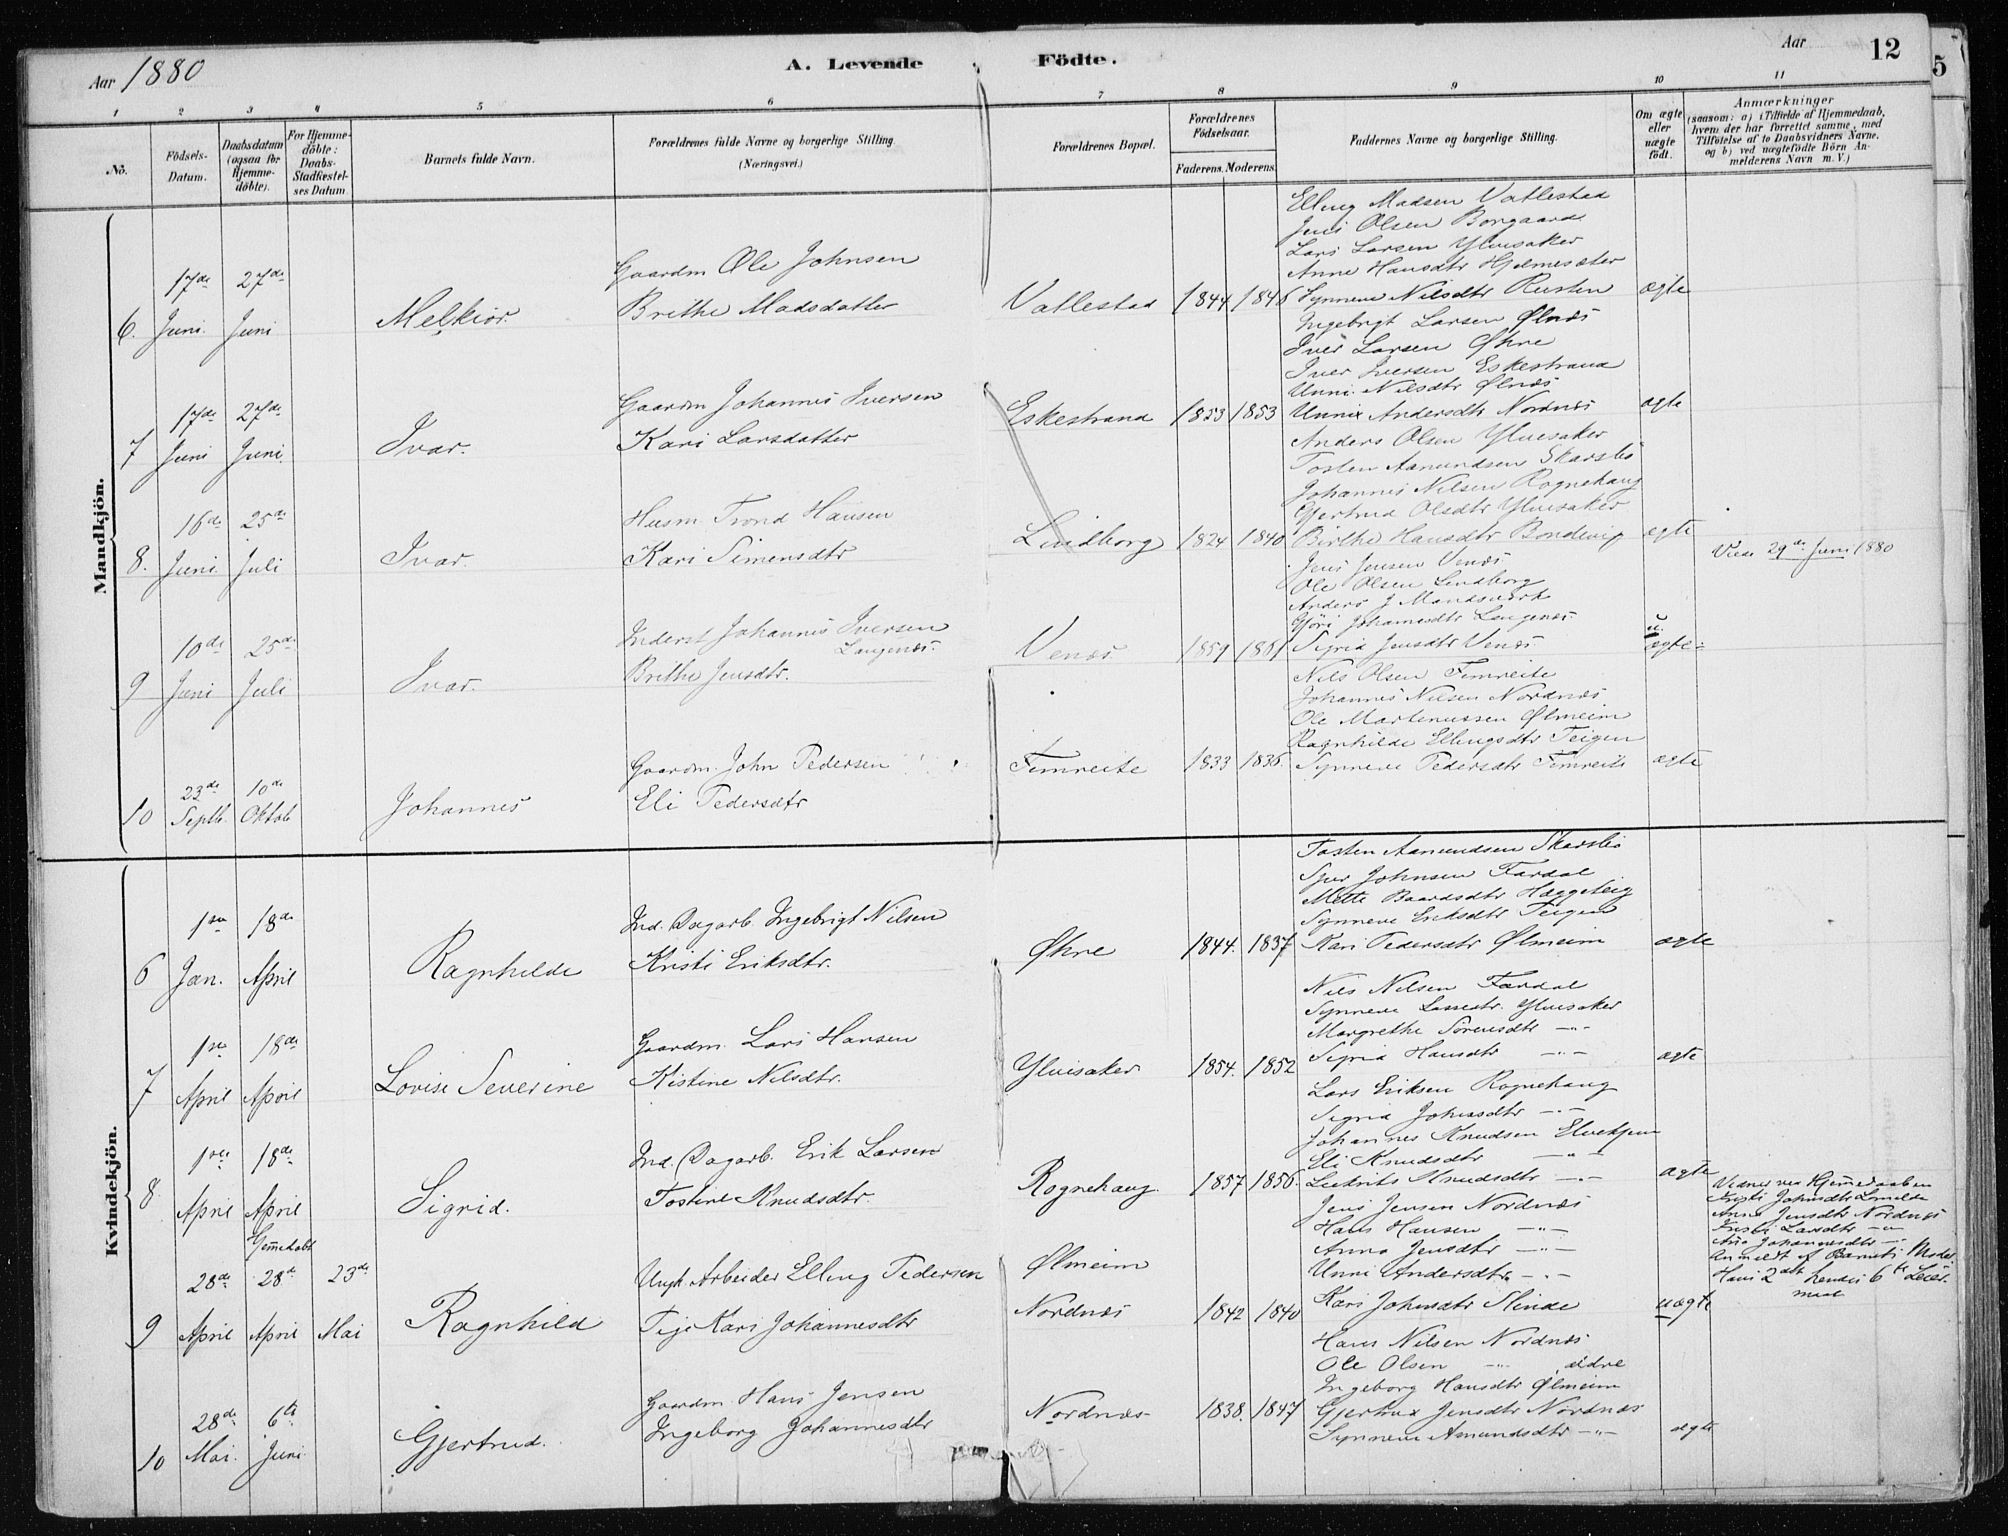 Aar 1880
A. Levende Födte.
Aar
12
1 2 3 4 5 6 7 8 9 10 11
No.
Födsels-Datum.
Daabsdatum (ogsaa for Hjemme-döbte).
For Hjemme-döbte: Daabs-Stadfæstel-ses Datum.
Barnets fulde Navn.
Forældrenes fulde Navne og borgerlige Stilling. (Næringsvei.)
Forældrenes Bopæl.
Forældrenes Födselsaar.
Faderens. Moderens.
Faddernes Navne og borgerlige Stilling.
Om ægte eller uægte födt.
Anmærkninger (saasom: a) i Tilfælde af Hjemmedaab, hvem der har forrettet samme, med Tilföielse af to Daabsvidners Navne, og b) ved uægtefödte Börn An-melderens Navn m. V.)
Mandkjön.
6. 17de Juni. 27de Juni
Melkior.
Gaardm. Ole Johnsen
Brithe Madsdatter
Vallestad 1844 1846
Elling Madsen Vallestad
Jens Olsen Borgaard
Lars Larsen Ylvisaker
Anne Hansdtr Hjelmesæter
Synneve Nilsdtr Rusten
ægte
7 17de Juni 27de Juni.
Ivar.
Gaardm Johannes Iversen
Kari Larsdatter
Eskestrand 1853 1853
Ingebrigt Larsen Ølnæs
Iver Larsen Øhre
Iver Iversen Eskestrand
Unni Nilsdtr Ølnæs
Unni Andersdtr Nordnæs
ægte
8. 16de Juni 25de Juli
Ivar.
Husm. Trond Hansen
Kari Simensdtr
Lindborg 1824 1840
Anders Olsen Ylvisaker
Tosten Aamundsen Skarsbö
Johannes Nilsen Rognehaug
Gjertrud Olsdtr Ylvisaker
Birthe Hansdtr Bondevig
ægte
Viede 29de Juni 1880
9 10de Juni 25de Juli
Ivar.
Inderst Johannes Iversen
Langenæs.
Brithe Jensdtr.
Venæs 1859 1861
Jens Jensen Venæs
Ole Olsen Lindborg
Anders J
Gjöri Johannesdtr Langenæs.
Sigrid Jensdtr Venæs
u. ægte
10 23de Septb. 10de Oktob
Johannes
Gaardm. John Pedersen
Eli Pedersdtr
Fimreite 1833 1836.
Nils Olsen Fimreite
Johannes Nilsen Nordnæs
Ole Martenussen Ølmeim
Ragnhilde Ellingsdtr Teigen
Synneve Pedersdtr Fimreite
ægte
Kvindekjön.
6 1ste Jan. 18de April
Ragnhilde
Ind. Dagarb. Ingebrigt Nilsen
Kristi Eriksdtr.
Øhre 1844. 1837
Tosten Aamundsen Skarsbö
Sjur Johnsen Fardal
Mette Baardsdtr Haggeteig
Synneve Eriksdtr Teigen
Kari Pedersdtr Ølmeim
ægte
7 1ste April 18de April
Lovise Severine
Gaardm. Lars Hansen
Kistine Nilsdtr.
Ylvisaker 1854. 1852
Nils Nilsen Fardal
Synneve Lassedtr. Ylvisaker
Margrethe Sörensdtr -"-
Sigrid Hansdtr -"-
ægte
8 1ste April 18de April
Sigrid.
Ind. Dagarb. Erik Larsen
Tostine Knudsdtr.
Rognehaug. 1857 1856.
Lars Eriksen Rognehaug
Sigrid Johnsdtr -"-
Johannes Knudsen
Eli Knudsdtr -"-
Knudsdtr -"-
ægte
9 28de April Hjemmedöbt 28de April 23de Mai
Ragnhild
Ungk. Arbeider Elling Pedersen
Pige Kari Johannesdtr
Ølmeim
Nordnæs 1842 1840
Jens Jensen Nordnæs
Hans Hansen -"-
Anna Jensdtr -"-
Unni Andersdtr -"-
Kari Johnsdtr Slinde
uægte
Vidner ved Hjemedaaben
Kristi Johnsdtr Lomelde
Anna Jensdtr Nordnæs
Kristi Larsdtr -"-
Johannesdtr -"-
Anmeldt af Barnets Moder
Hans 2det hendes 6te Leier-
maal
10 28de Mai. 6te Juni
Gjertrud.
Gaardm. Hans Jensen
Ingeborg Johannesdtr
Nordnæs 1838. 1847
Hans Nilsen Nordnæs
Ole Olsen -"- ældre
Ingeborg Hansdtr Ølmeim
Gjertrud Jensdtr Nordnæs
Synneve Amundsdtr -"-
ægte